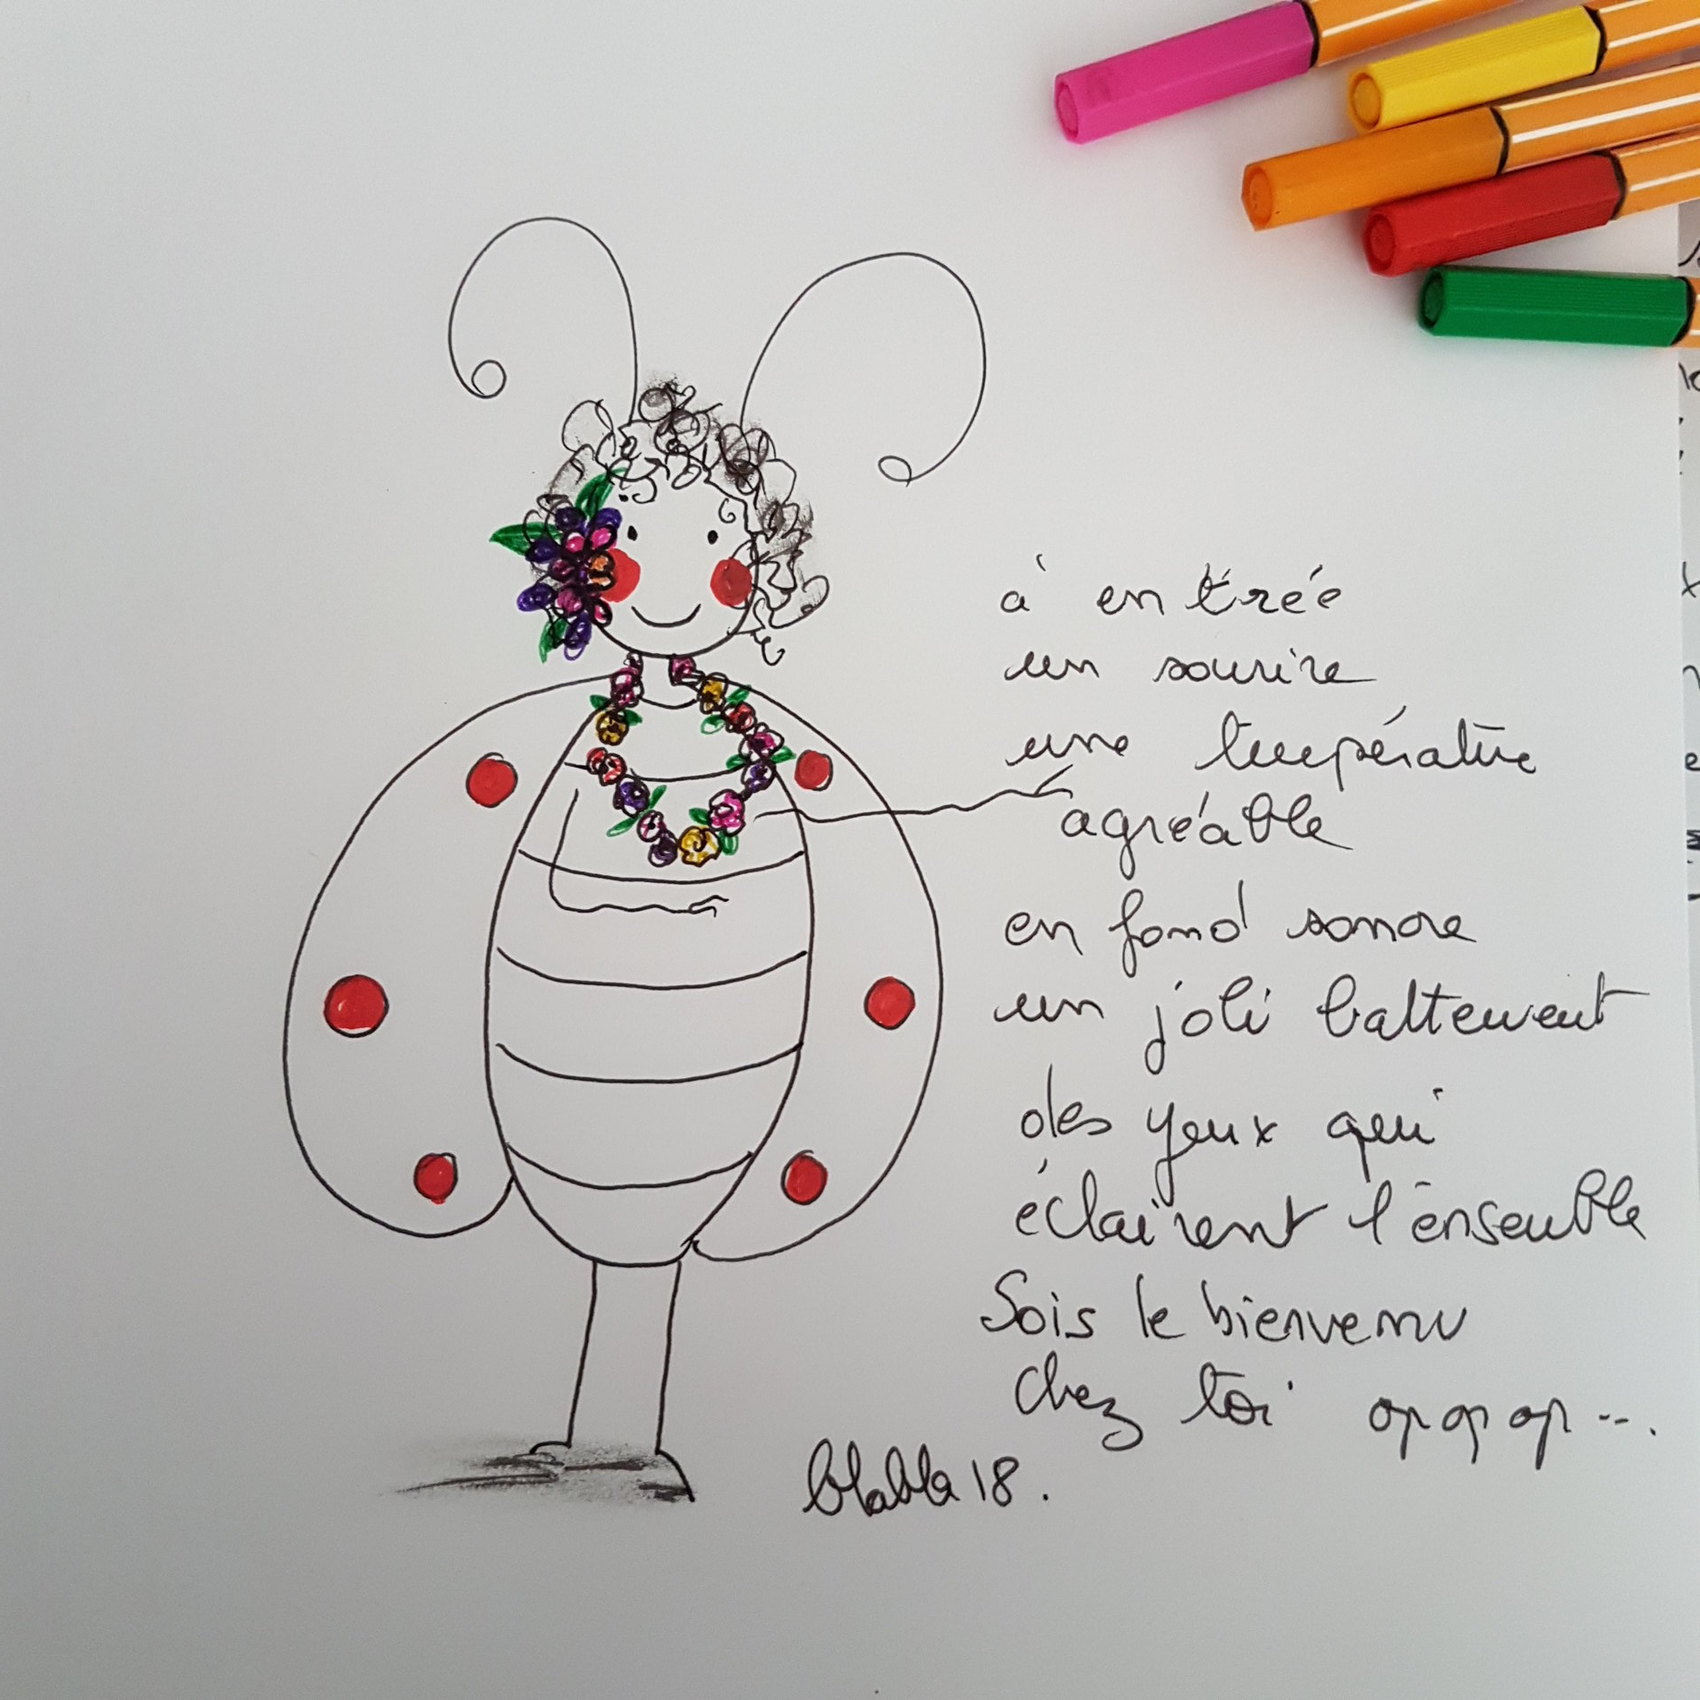 à entrée
un sourire
une température
agréable
en fond sonore
un joli battement
des yeux qui
éclairent l'ensemble
Sois le bienvenu
chez toi op op op ....
blabla 18.